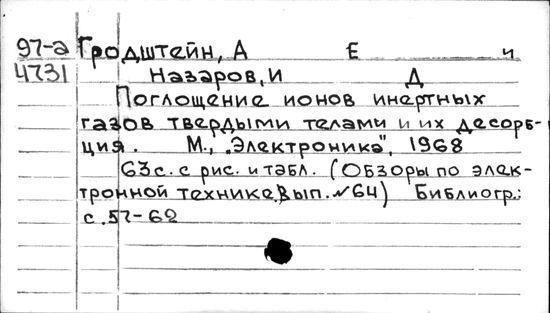 97-а Гродштейн, А Е и
4731 Назаров, И Д
Поглощение ионов инертных
газов твердыми телами и их десорб-
ция. М., „Электроника", 1968
63с. с рис. и табл. (Обзоры по элек-
тронной технике. Вып. №64) Библиогр.:
с. 57-62